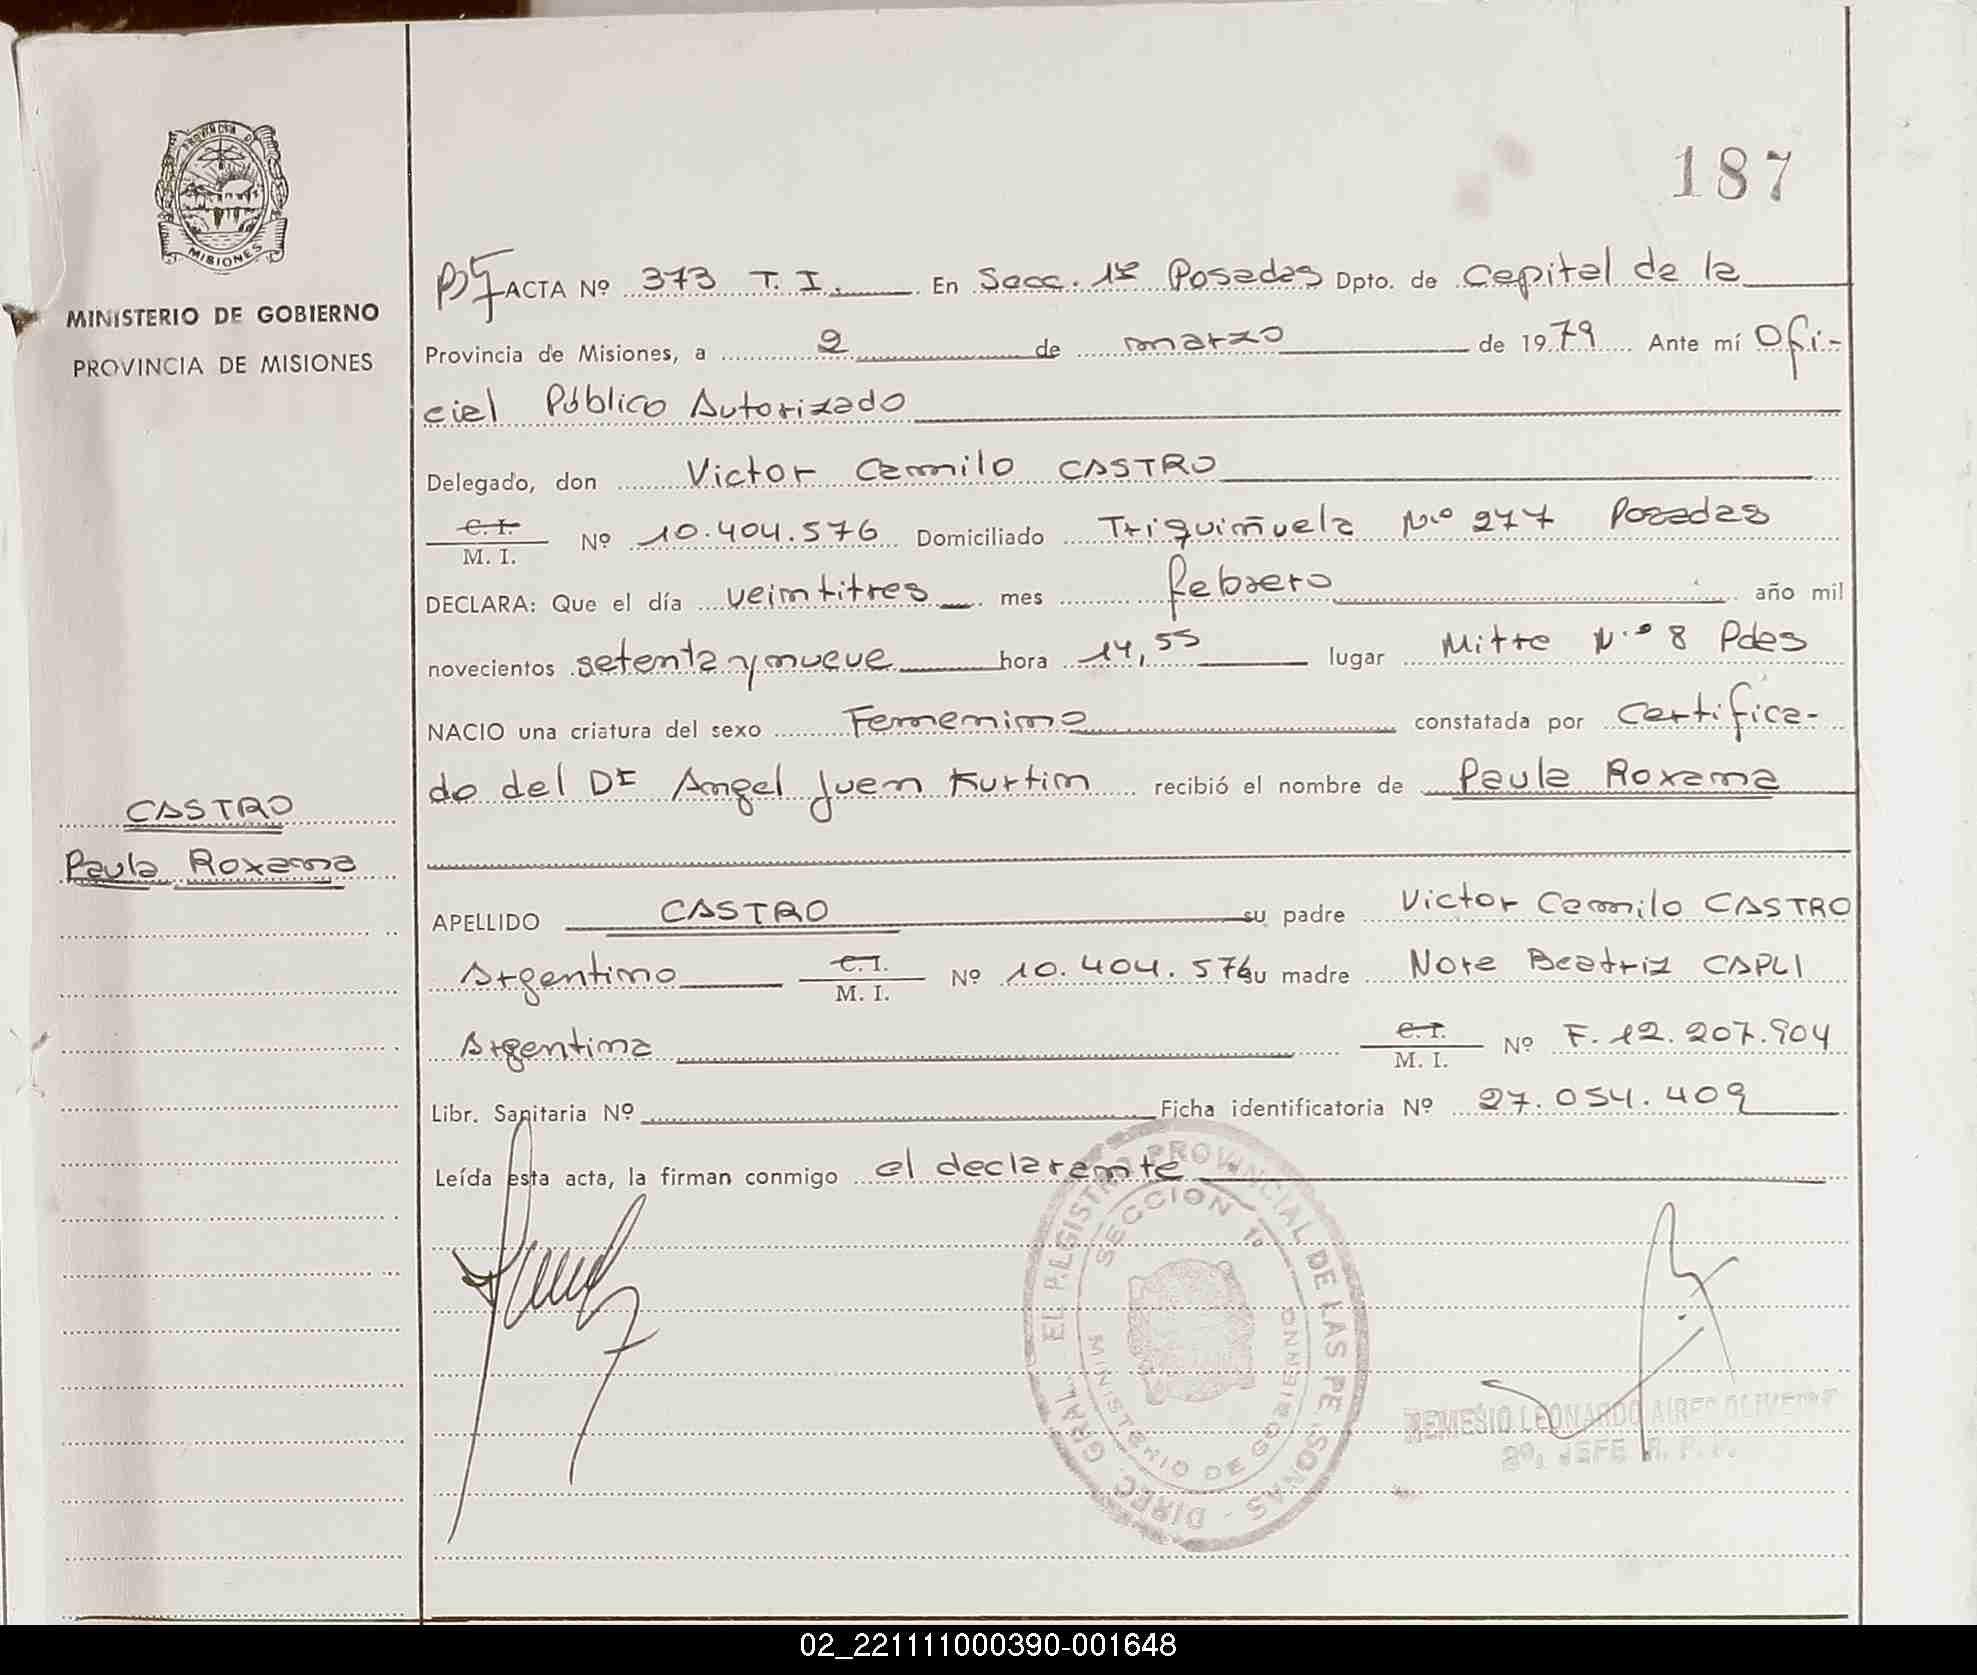 187
PROVINCIA DE
MISIONES
MINISTERIO DE GOBIERNO
PROVINCIA DE MISIONES
ACTA Nº 373 T. I. En Secc. 1ª Posadas Dpto. de Capital de la
Provincia de Misiones, a 2 de marzo de 1979 Ante mí Ofi-
cial Público Autorizado
Delegado, don Victor Camilo CASTRO
C. I.
M. I. Nº 10.404.576 Domiciliado Triguiñuela Nº 277 Posadas
DECLARA: Que el día veintitres mes febrero año mil
novecientos setenta y nueve hora 14,55 lugar Mitre Nº 8 Pdas
NACIO una criatura del sexo Femenino constatada por Certifica-
do del Dr Angel Juan Kurtin recibió el nombre de Paula Roxana
CASTRO
Paula Roxana
APELLIDO CASTRO su padre Victor Camilo CASTRO
Argentino C. I.
M. I. Nº 10.404.576 su madre Nora Beatriz CAPLI
Argentina C. I.
M. I. Nº F. 12.207.904
Libr. Sanitaria Nº Ficha identificatoria Nº 27.054.409
Leída esta acta, la firman conmigo el declarante
DIREC. GRAL. EL REGISTRO PROVINCIAL DE LAS PERSONAS -
SECCION 1º
MINISTERIO DE GOBIERNO
REMESIO LEONARDO AIRES OLIVEIRA
2º. JEFE R. P. P.
02_221111000390-001648